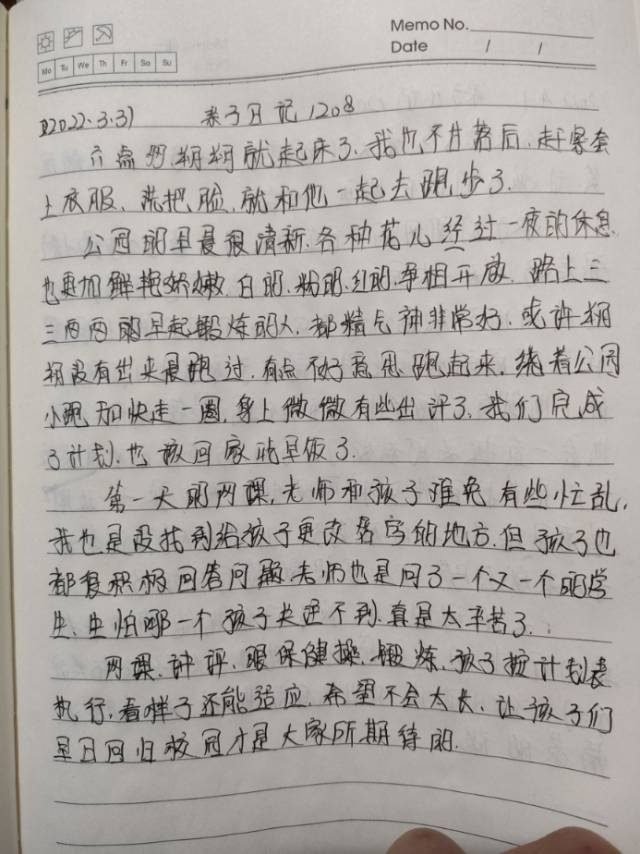 Memo No.
Date / /
Mo Tu We Th Fr Sa Su
2022.3.31 亲子日记1208
六点多,翔翔就起床了.我也不甘落后.赶紧套
上衣服、洗把脸,就和他一起去跑步了.
公园的早晨很清新.各种花儿经过一夜的休息.
也更加鲜艳娇嫩.白的.粉的.红的.争相开放.路上三
三两两的早起锻炼的人.都精气神非常好.或许翔
翔没有出来晨跑过.有点不好意思跑起来.绕着公园
小跑加快走一圈,身上微微有些出汗了.我们完成
了计划.也该回家吃早饭了.
第一天的网课,老师和孩子难免有些忙乱.
我也是没找到给孩子更改名字的地方.但孩子也
都有积极回答问题.老师也是问了一个又一个的学
生.生怕哪一个孩子关照不到.真是太辛苦了.
网课.讲评.眼保健操.锻炼.孩子按计划表
执行.看样子还能适应.希望不会太长.让孩子们
早日回归校园才是大家所期待的.